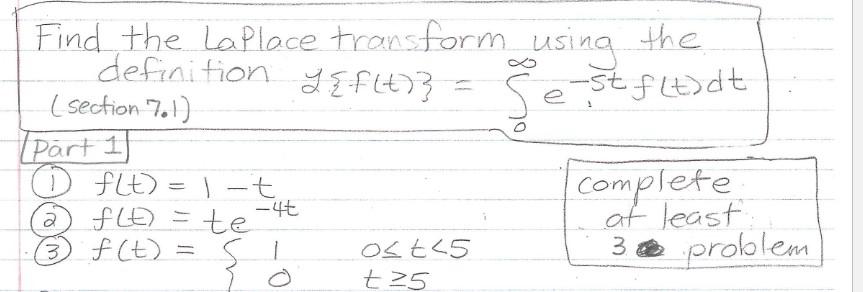 Find the LaPlace transform using the
definition ℒ{f(t)} = ∫₀^∞ e^-st f(t)dt
(section 7.1)
Part 1
① f(t) = 1 - t
② f(t) = te^-4t
③ f(t) = { 1 0≤t<5
0 t≥5
complete
at least
3 problem